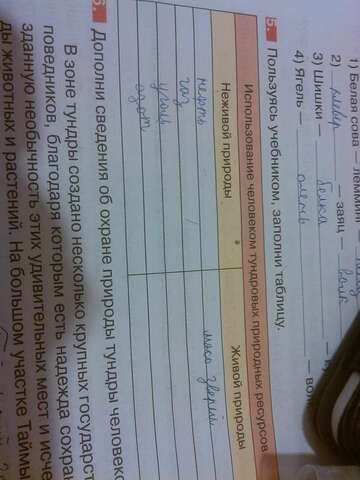 1) Белая сова — лемминг
2) клевер — заяц — волк
3) Шишки — белка
4) Ягель — олень — вол
5. Пользуясь учебником, заполни таблицу.
Использование человеком тундровых природных ресурсов
Неживой природы Живой природы
нефть мясо зверей
газ
уголь
азот
6. Дополни сведения об охране природы тундры человек
В зоне тундры создано несколько крупных государст
поведников, благодаря которым есть надежда сохра
зданную необычность этих удивительных мест и исче
ды животных и растений. На большом участке Таймы